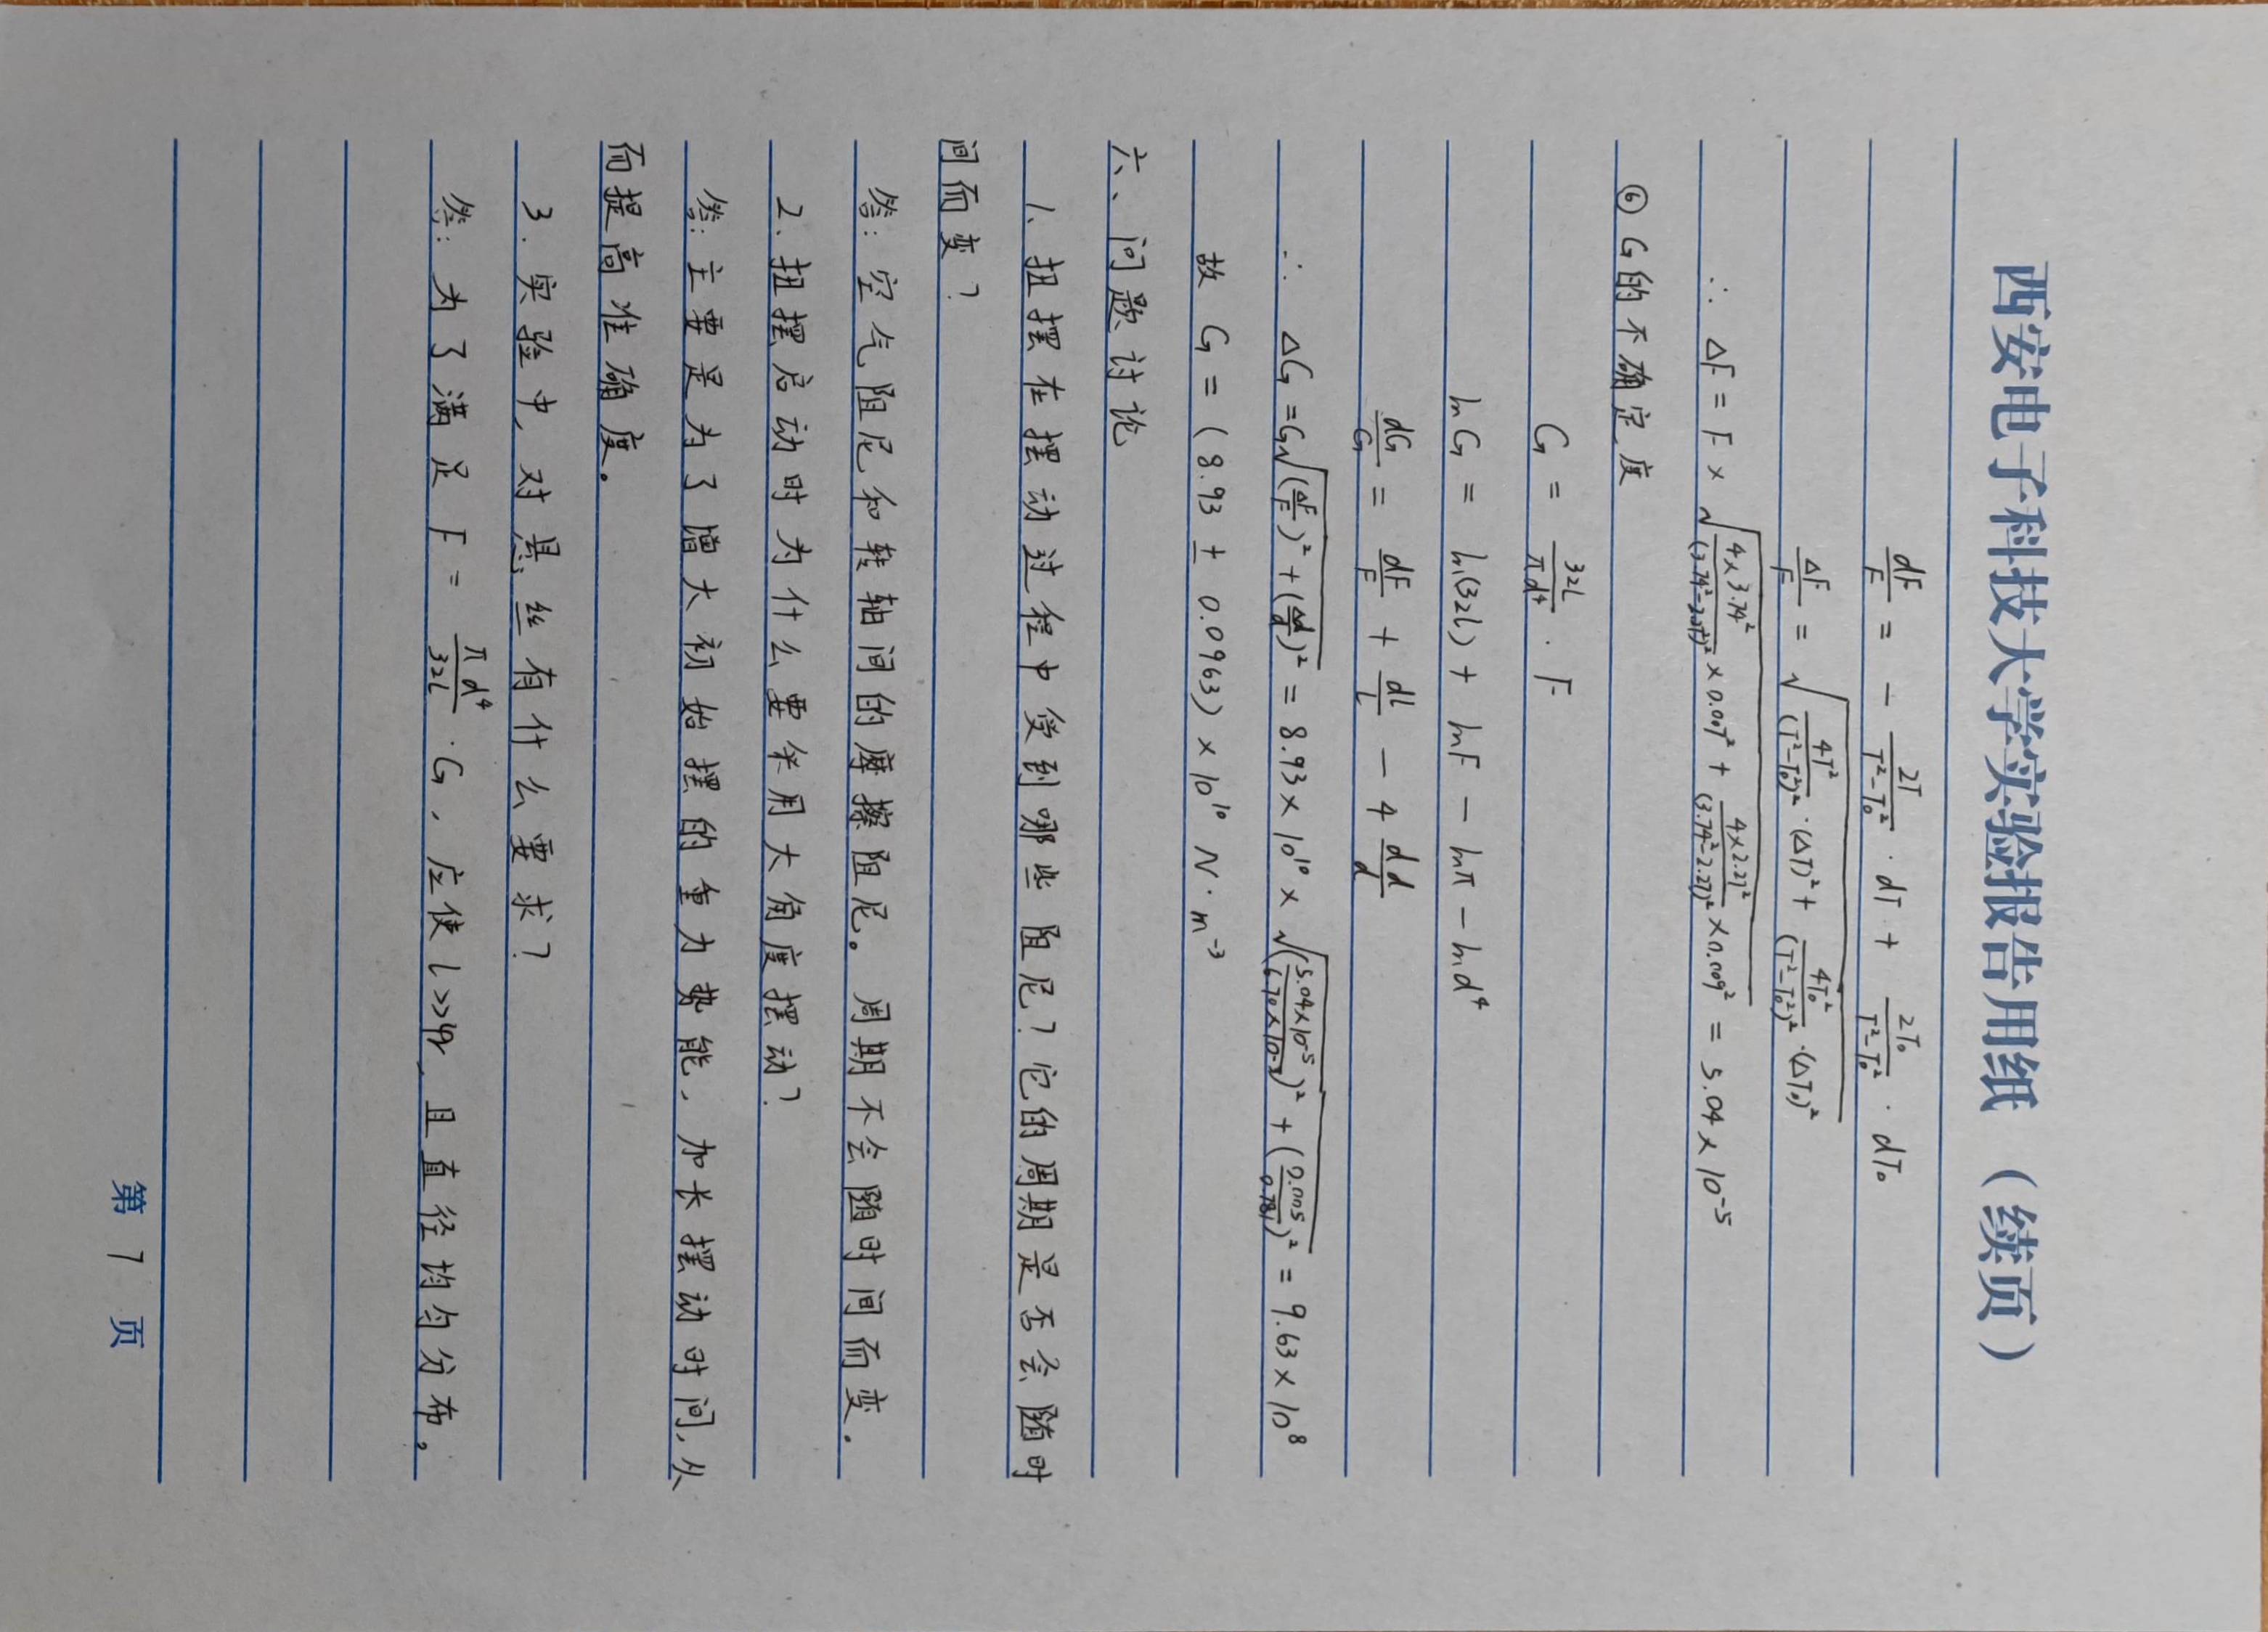 西安电子科技大学实验报告用纸 （续页）
dF/F = - 2T/(T²-T₀²) · dT + 2T₀/(T²-T₀²) · dT₀
ΔF/F = √(4T²/(T²-T₀²)² ·(ΔT)² + 4T₀²/(T²-T₀²)² ·(ΔT₀)²)
∴ ΔF = F × √(4×3.74²/(3.74²-2.27²)² × 0.007² + 4×2.27²/(3.74²-2.27²)² ×0.009²) = 5.04 × 10⁻⁵
⑥ G的不确定度
G = 32L/πd⁴ · F
ln G = ln(32L) + lnF - lnπ - lnd⁴
dG/G = dF/F + dL/L - 4 dd/d
∴ ΔG = G√((ΔF/F)² + (Δd/d)²) = 8.93 × 10¹⁰ × √((5.04×10⁻⁵/6.70×10⁻³)² + (0.005/0.781)²) = 9.63 × 10⁸
故 G = (8.93 ± 0.0963) × 10¹⁰ N·m⁻³
六、问题讨论
1、扭摆在摆动过程中受到哪些阻尼？它的周期是否会随时
间而变？
答：空气阻尼和转轴间的摩擦阻尼。周期不会随时间而变．
2．扭摆启动时为什么要采用大角度摆动？
答：主要是为了增大初始摆的重力势能，加长摆动时间，从
而提高准确度。
3．实验中，对悬丝有什么要求？
答：为了满足 F = πd⁴/32L · G，应使 L>> ，且直径均匀分布。
第 7 页